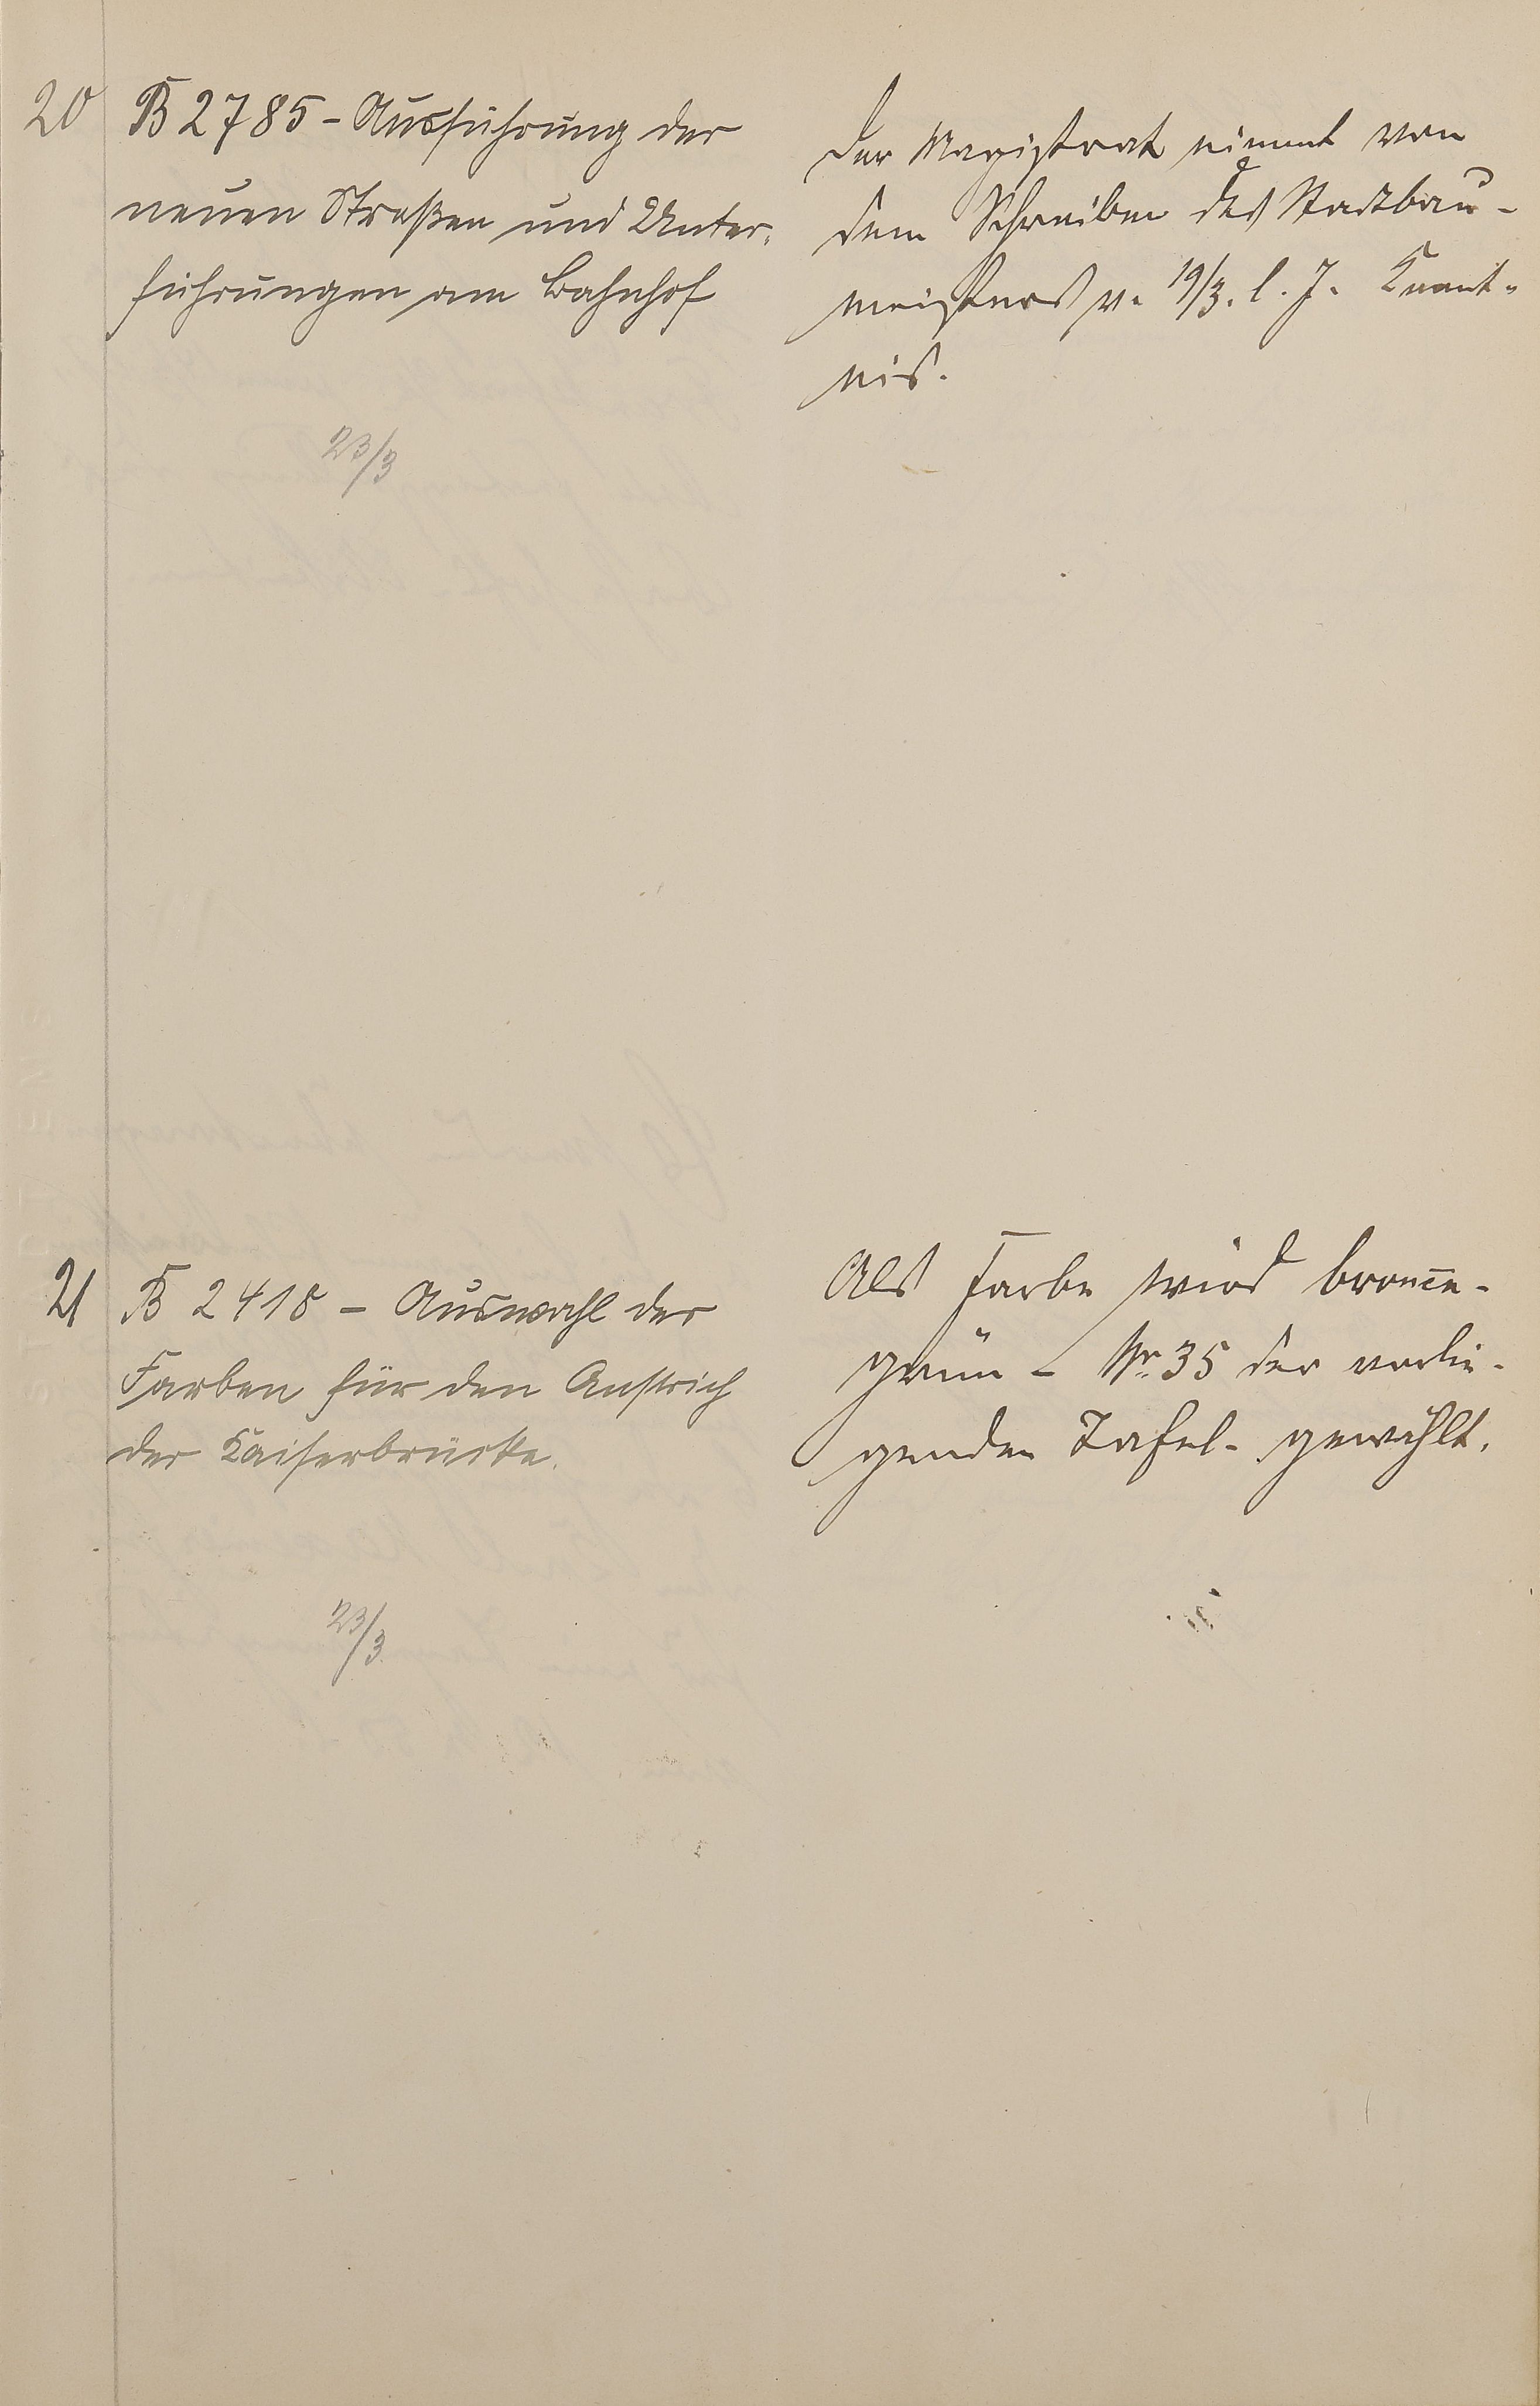 20
B 2785 - Ausführung der
neuen Straßen und Unter-
führungen am Bahnhof
23/3
Der Magistrat nimmt von
dem Schreiben des Stadtbau-
meisters v. 19/3. l. J. Kennt-
nis.
21
B 2418 - Auswahl der
Farben für den Anstrich
der Kaiserbrücke.
23/3
Als Farbe wird bronce-
grün - Nr. 35 der vorlie-
genden Tafel - gewählt.